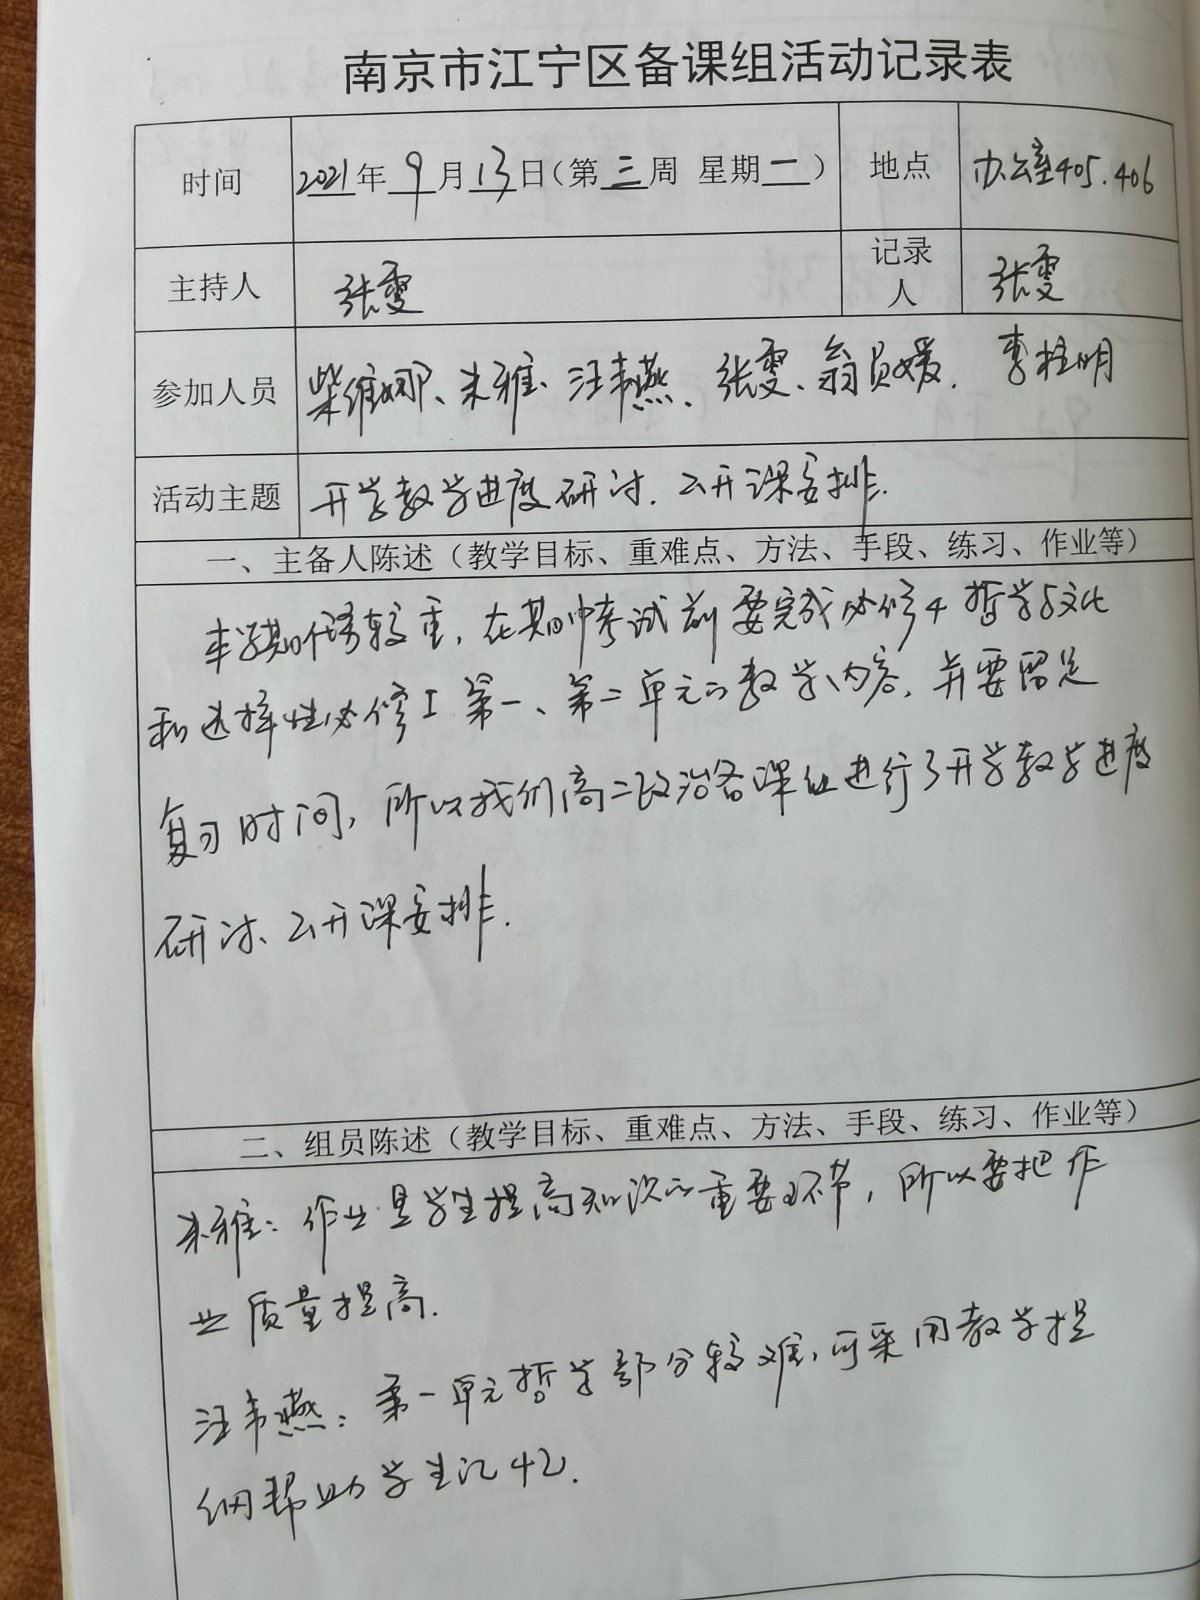 南京市江宁区备课组活动记录表
时间 2021年 9 月 13 日(第 三 周 星期 一 ) 地点 办公室405.406
主持人 张雯 记录人 张雯
参加人员 柴维娜、朱雅、汪韦燕、张雯、翁员媛、李桂明
活动主题 开学教学进度研讨、公开课安排.
一、主备人陈述（教学目标、重难点、方法、手段、练习、作业等）
本学期任务较重，在期中考试前要完成必修4 哲学与文化
和选择性必修I 第一、第二单元的教学内容，并要留足
复习时间，所以我们高二政治备课组进行了开学教学进度
研讨、公开课安排.
二、组员陈述（教学目标、重难点、方法、手段、练习、作业等）
朱雅：作业是学生提高知识的重要环节，所以要把作
业质量提高.
汪韦燕：第一单元哲学部分较难，可采用教学提
纲帮助学生记忆.